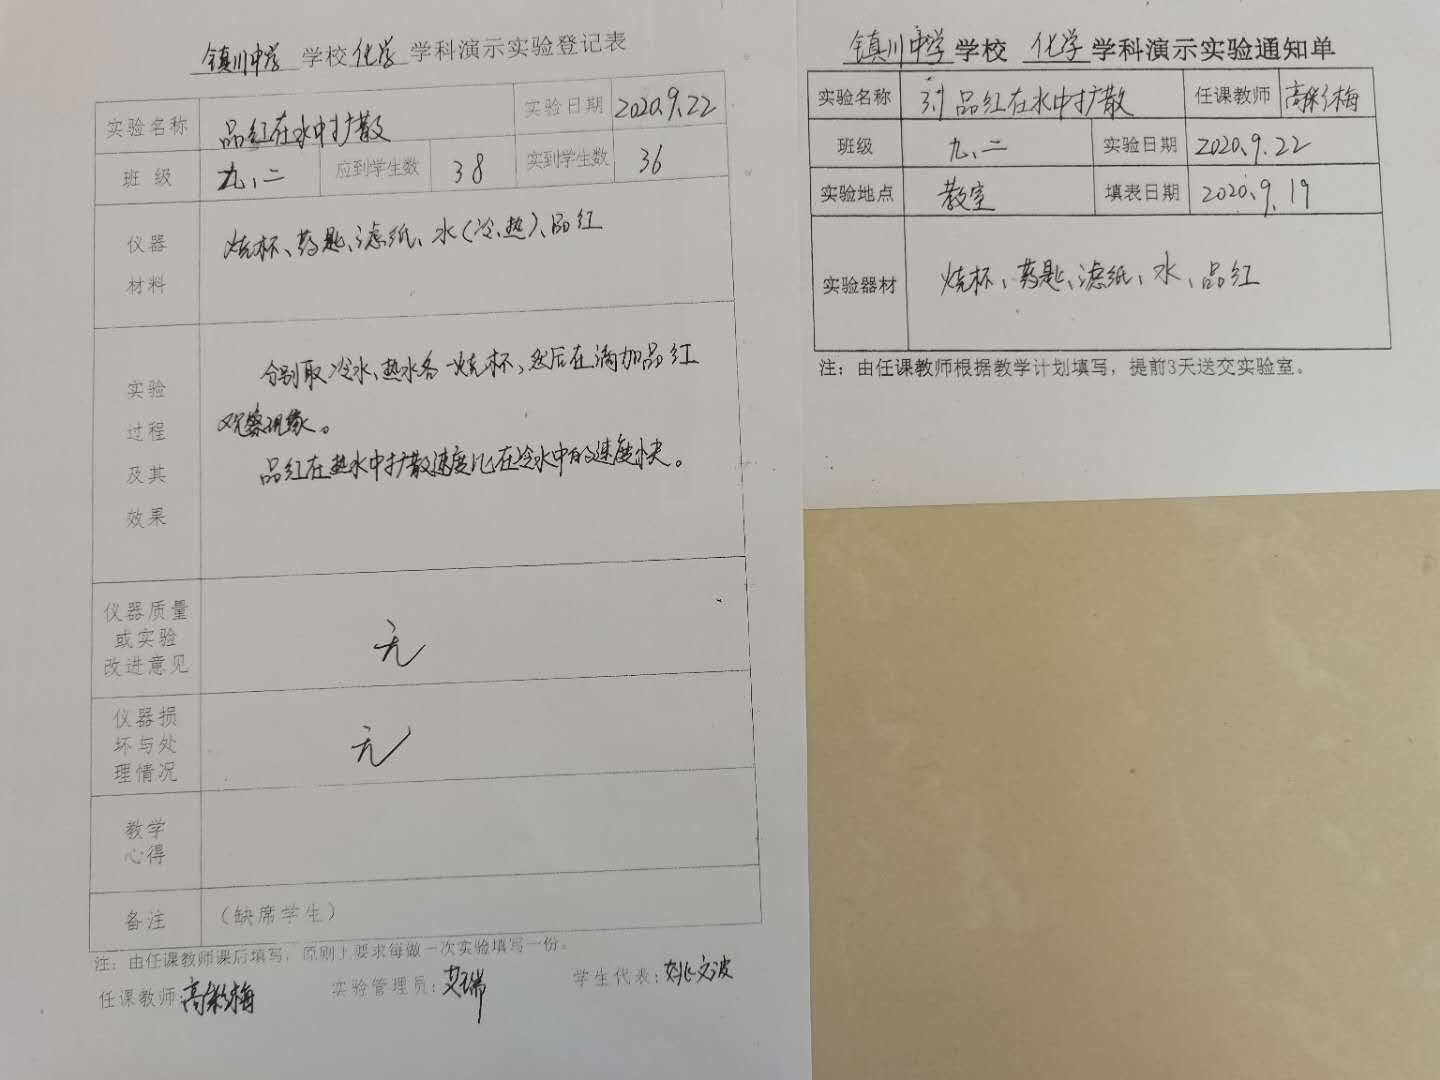 镇川中学 学校 化学 学科演示实验登记表
实验名称 品红在水中扩散 实验日期 2020.9.22
班 级 九、二 应到学生数 38 实到学生数 36
仪器
材料
烧杯、药匙、滤纸、水(冷、热)、品红
实验
过程
及其
效果
分别取冷水、热水各一烧杯、然后在滴加品红
观察现象。
品红在热水中扩散速度比在冷水中的速度快。
仪器质量
或实验
改进意见
无
仪器损
坏与处
理情况
无
教学
心得
备注 (缺席学生)
注：由任课教师课后填写，原则上要求每做一次实验填写一份。
任课教师:高彩梅 实验管理员:艾瑞 学生代表:姚文波
镇川中学 学校 化学 学科演示实验通知单
实验名称 品红在水中扩散 任课教师 高彩梅
班级 九、二 实验日期 2020.9.22
实验地点 教室 填表日期 2020.9.19
实验器材 烧杯、药匙、滤纸、水、品红
注：由任课教师根据教学计划填写，提前3天送交实验室。